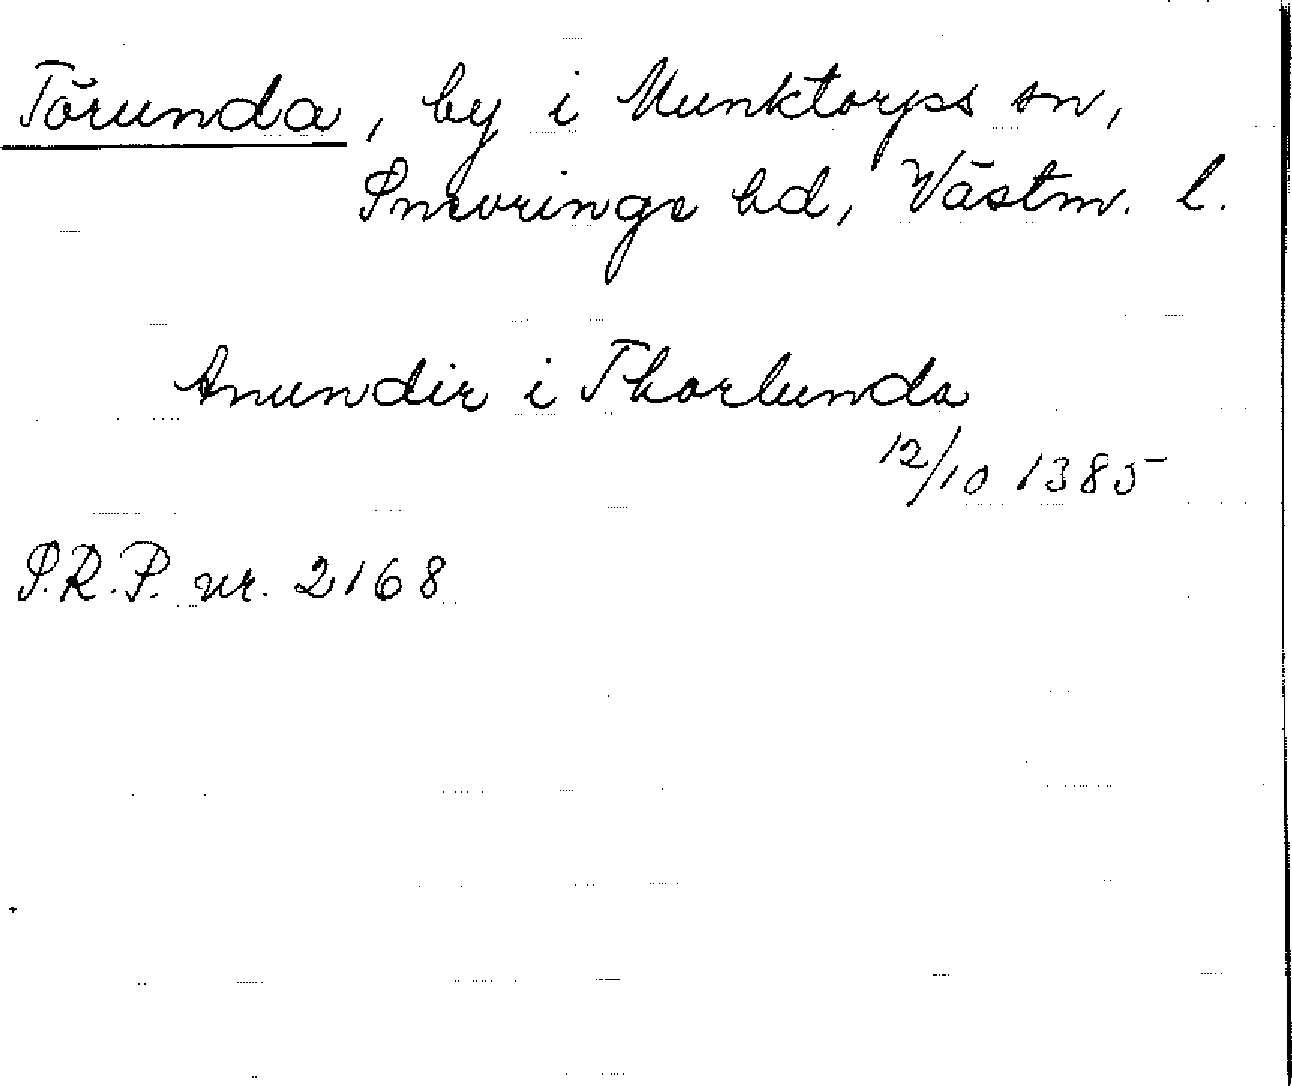 Törunda, by i Munktorps sn,
Snevringe hd, Västm. l.
Anundir i Thorlunda
12/10 1385
S.R.P. nr. 2168